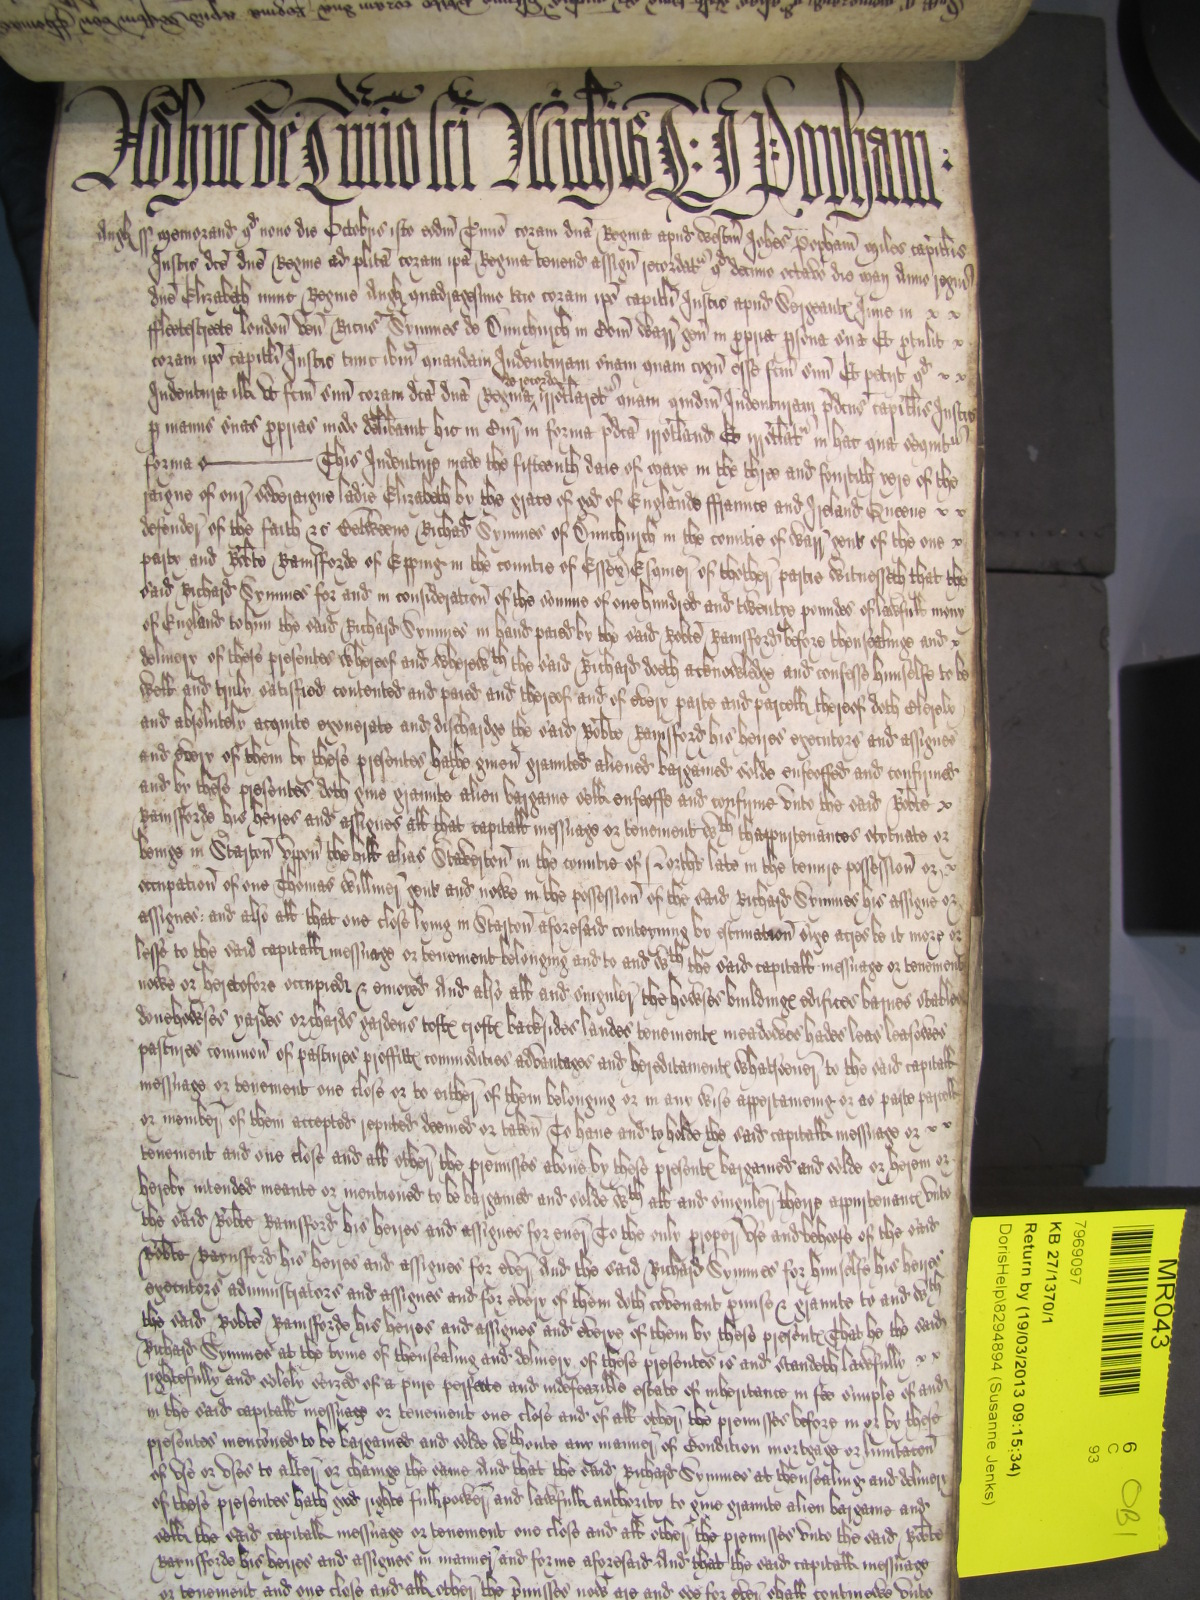 Adhuc de Tmio sci Michis T: J Popham:
Angl ss Memorand qd nono die Octobris isto eodm Tmio coram dna Regina apud Westm Johes Popham miles capitlis
Justic dce dne Regine ad plita coram ipa Regina tenend assign recordat qd decimo octavo die Maii Anno regni
dne Elizabeth nunc Regine Angl quadragesimo tcio coram ipo capitli Justic apud Sergeants Inne in x x
Ffletestreete London ven Ricus Symmes de Dunchurch in Com Warr gen in ppria psona sua Et ptulit x
coram ipo capitli Justic tunc ibm quandam Indenturam suam quam cogn esse fcm suu Et petiit qd x x
Indentura ill vt fcm suu coram dca dna Regina de recordo irrotlaret quam quidm Indenturam pdcus capitlis Justic
p manus suas pprias modo deliberavit hic in Cur in forma pdca irrotland Et irrotlat in hac que sequit
forma This Indenture made the fifteenth daie of Maye in the three and fourtith yere of the
raigne of our Soveraigne ladie Elizabeth by the grace of god of Englande Ffraunce and Ireland Queene x x
defender of the faith &c Betweene Richard Symmes of Dunchurch in the countie of Warr gent of the one x
parte and Robte Ramsforde of Epping in the countie of Essex Esquier of thother partie Witnesseth that the
said Richard Symmes for and in consideration of the somme of one hundred and twentye poundes of lawfull mony
of England to him the said Richard Symmes in hand paied by the said Robte Ramsford before thensealinge and x
delivery of these presentes whereof and wherewth the said Richard doth acknowledge and confesse himselfe to be
well and truly satisfied contented and paied and thereof and of every parte and parcell thereof doth clerely
and absolutely acquite exonerate and dischardge the said Robte Ramsford his heires executors and assignes
and every of them by these presentes hathe given graunted aliened bargained solde enfeoffed and confirmed
and by these presentes doth give graunte alien bargaine sell enfeoffe and confirme unto the said Robte x
Ramsforde his heires and assignes all that capitall messuage or tenement wth thappurtenances scytuate or
beinge in Starton vppon the hill alias Staverton in the countie of Northt late in the tenure possession or x
occupation of one Thomas Willmer gent and nowe in the possession of the said Richard Symmes his assigne or
assignes: and also all that one close lying in Starton aforesaid conteyning by estimation sixe acres be it more or
lesse to the said capitall messuage or tenement belonging and to and wth the said capitall messuage or tenement
nowe or heretofore occupied & enioyed And also all and singuler the howses buildings edifices barnes stables
dovehowses yardes orchards gardens tofts crofts backsides landes tenements meadowes hades leas leasowes
pastures common of pastures proffitts commodities advantages and hereditaments whatsoever to the said capitall
messuage or tenement one close or to either of them belonging or in any wise appertaineing or as parte parcell
or member of them accepted reputed deemed or taken To have and to holde the said capitall messuage or x x
tenement and one close and all other the premisses above by these presents bargained and solde or herein or
hereby intended meante or mentioned to be bargained and solde wth all and singuler theire appurtenances vnto
the said Robte Ramsford his heires and assignes for ever To the only proper vse and behoofe of the said
Robte Ramsford his heires and assignes for ever And the said Richard Symmes for himselfe his heires
executors administrators and assignes and for every of them doth covenant pmise & graunte to and wth
the said Robte Ramsforde his heires and assignes and everie of them by these presents That he the said
Richard Symmes at the tyme of thensealing and delivery of these presentes is and standeth lawfully x x
rightefully and solely seized of a pure perfecte and indefeazible estate of inheritance in fee simple of and
in the said capitall messuage or tenement one close and of all other the premisses before in or by these
presentes mencioned to be bargained and solde wthoute any manner of Condition mortgage or limitacon
of vse or vses to alter or chainge the same And that the said Richard Symmes at thensealing and delivery
of these presentes hath good righte full power and lawfull authority to give graunte alien bargaine and
sell the said capitall messuage or tenement one close and all other the premisses vnto the said Robte
Ramsforde his heires and assignes in manner and forme aforesaid And that the said capitall messuage
or tenement and one close and all other the pmisses now are and soe for ever shall contineue vnto
MR043
6
C
93
OBI
7969097
KB 27/1370/1
Return by (19/03/2013 09:15:34)
DorisHelp\8294894 (Susanne Jenks)